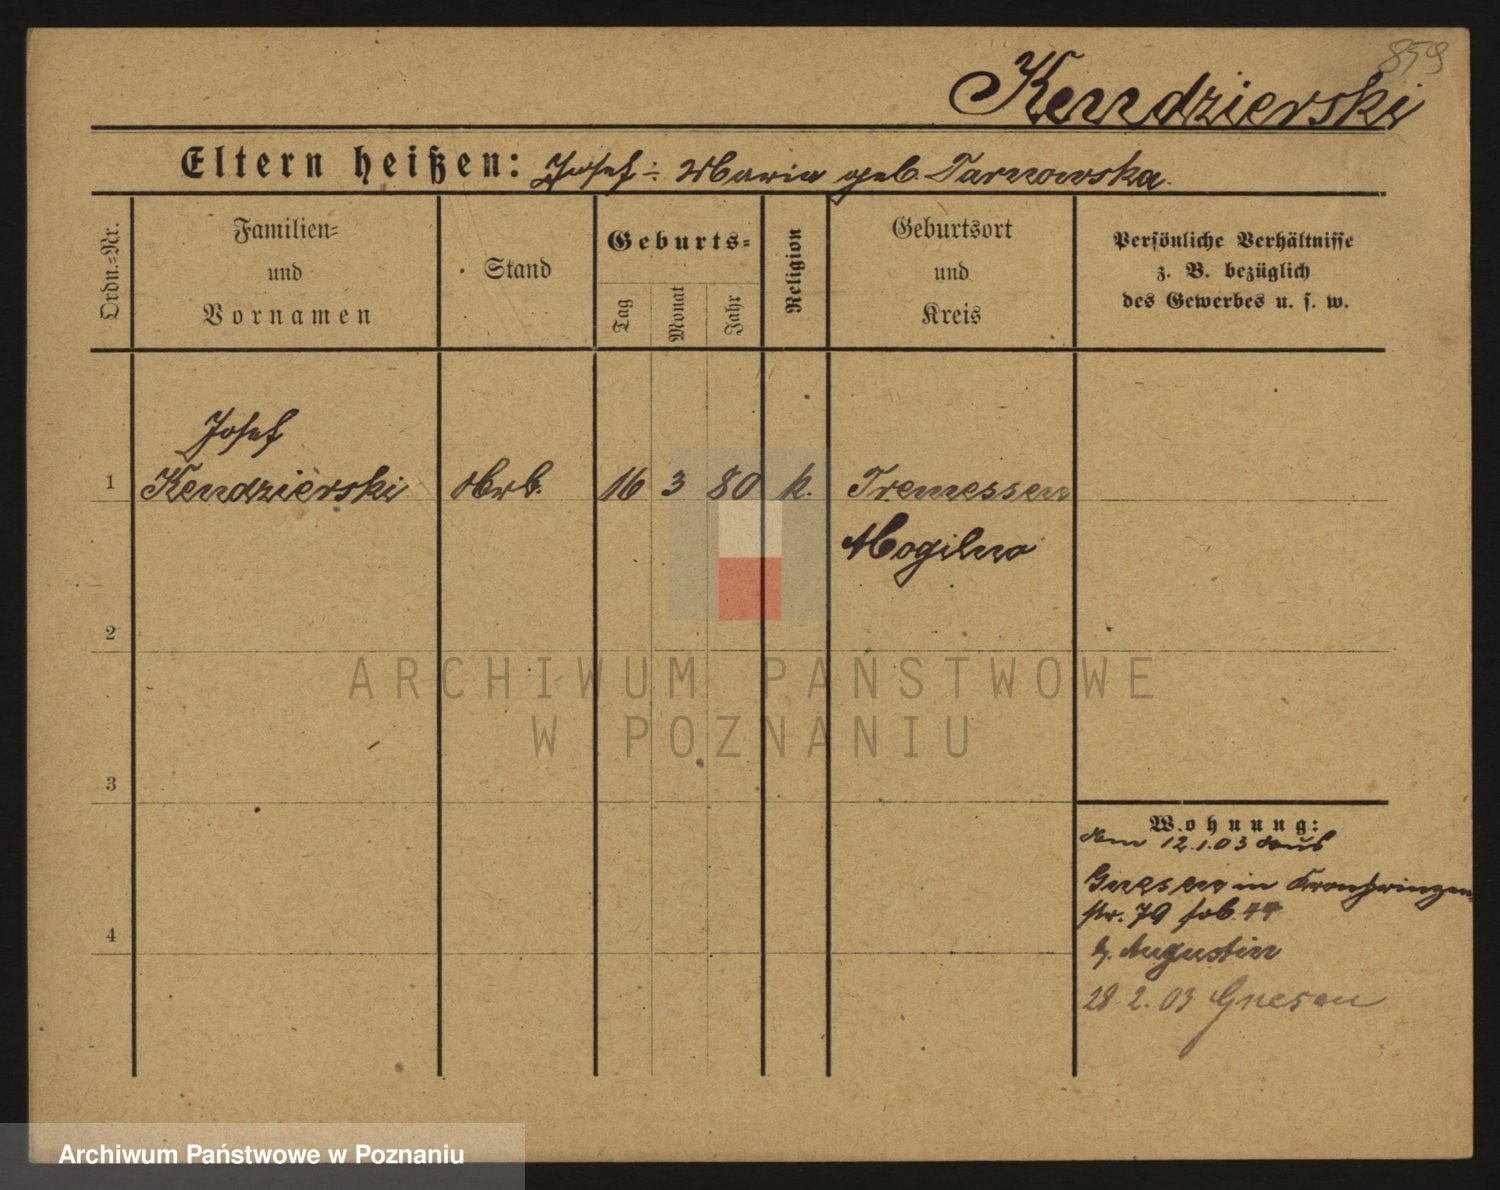 859
Kendzierski
Eltern heißen: Josef ÷ Maria geb. Tarnowska.
Ordn.=Nr.
Familien=
und
Vornamen
Stand
Geburts=
Tag
Monat
Jahr
Religion
Geburtsort
und
Kreis
Persönliche Verhältnisse
z. B. bezüglich
des Gewerbes u. s. w.
Josef
1 Kendzierski Arb. 16 3 80 k. Tremessen
Mogilno
2
3
4
Wohnung:
Am 12.1.03 aus
Gnesen in Kronprinzen
str. 79
b. Augustin
28 2. 03 Gnesen
ARCHIWUM PAŃSTWOWE
W POZNANIU
Archiwum Państwowe w Poznaniu